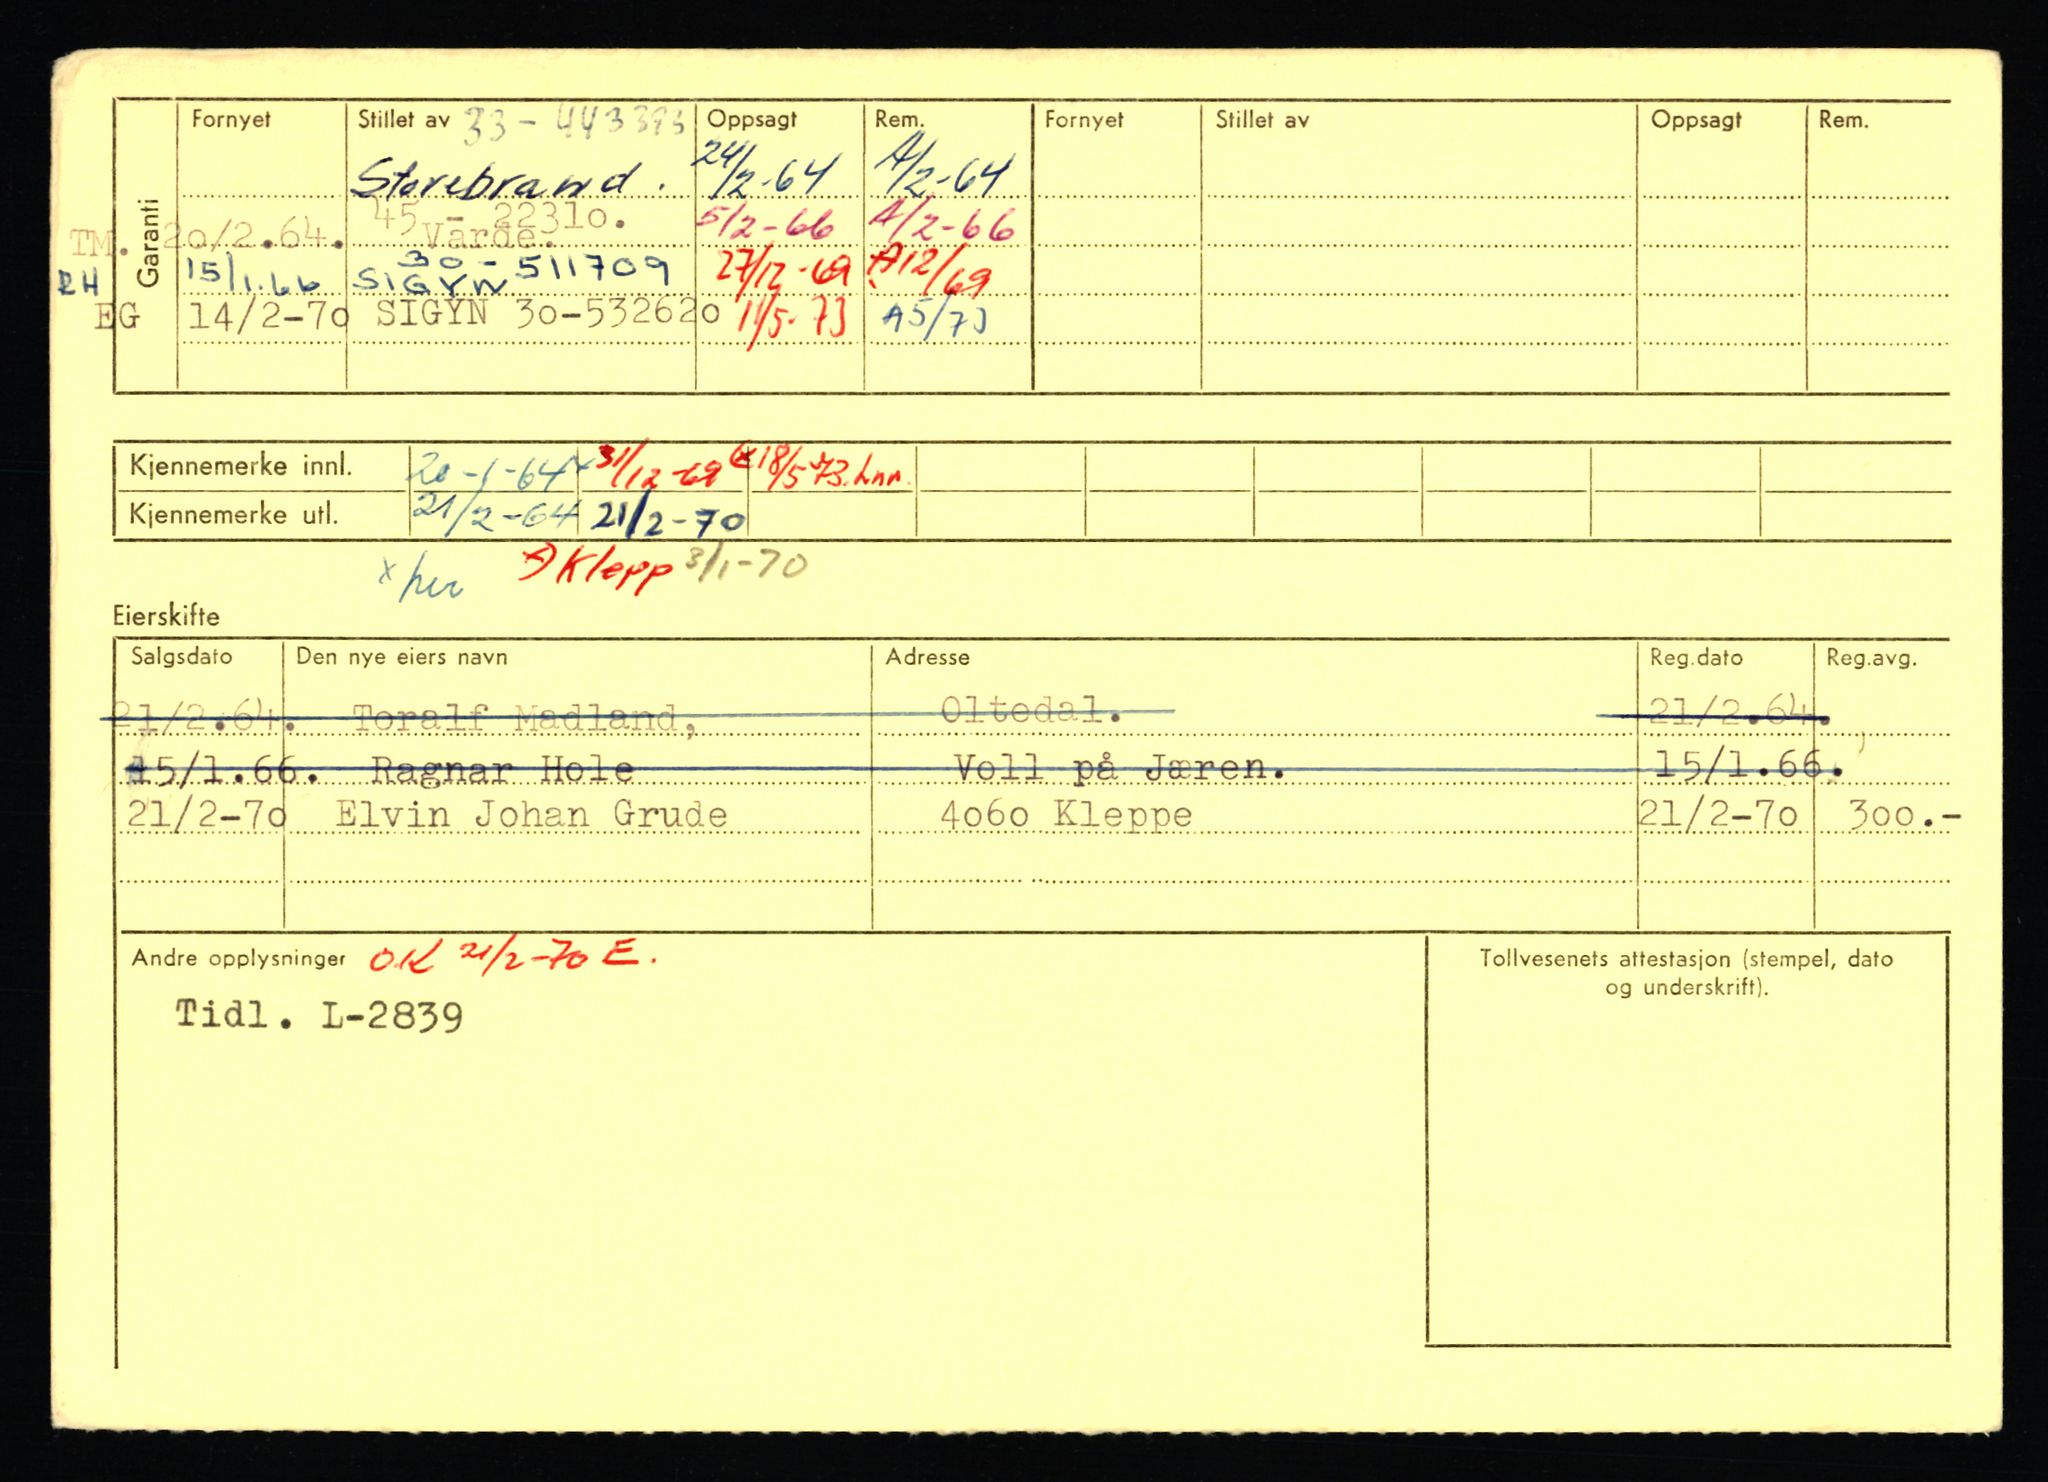 Garanti
Fornyet Stillet av 33-443393 Oppsagt Rem. Fornyet Stillet av Oppsagt Rem.
Storebrand. 24/2-64 A/2-64
45 - 22310.
TM. 20/2.64. Varde. 5/2-66 A/2-66
30 - 511709
RH 15/1.66 SIGYN 27/12-69 A12/69
EG 14/2-70 SIGYN 30-532620 11/5-73 A5/73
Kjennemerke innl. 20-1-64 x 31/12-69 18/5-73. Lnn.
Kjennemerke utl. 21/2-64 21/2-70
x her A) Klepp 3/1-70
Eierskifte
Salgsdato Den nye eiers navn Adresse Reg.dato Reg.avg.
21/2.64. Toralf Madland, Oltedal. 21/2.64.
15/1.66. Ragnar Hole Voll på Jæren. 15/1.66.
21/2-70 Elvin Johan Grude 4060 Kleppe 21/2-70 300.-
Andre opplysninger O.K 21/2-70 E.
Tidl. L-2839
Tollvesenets attestasjon (stempel, dato
og underskrift).